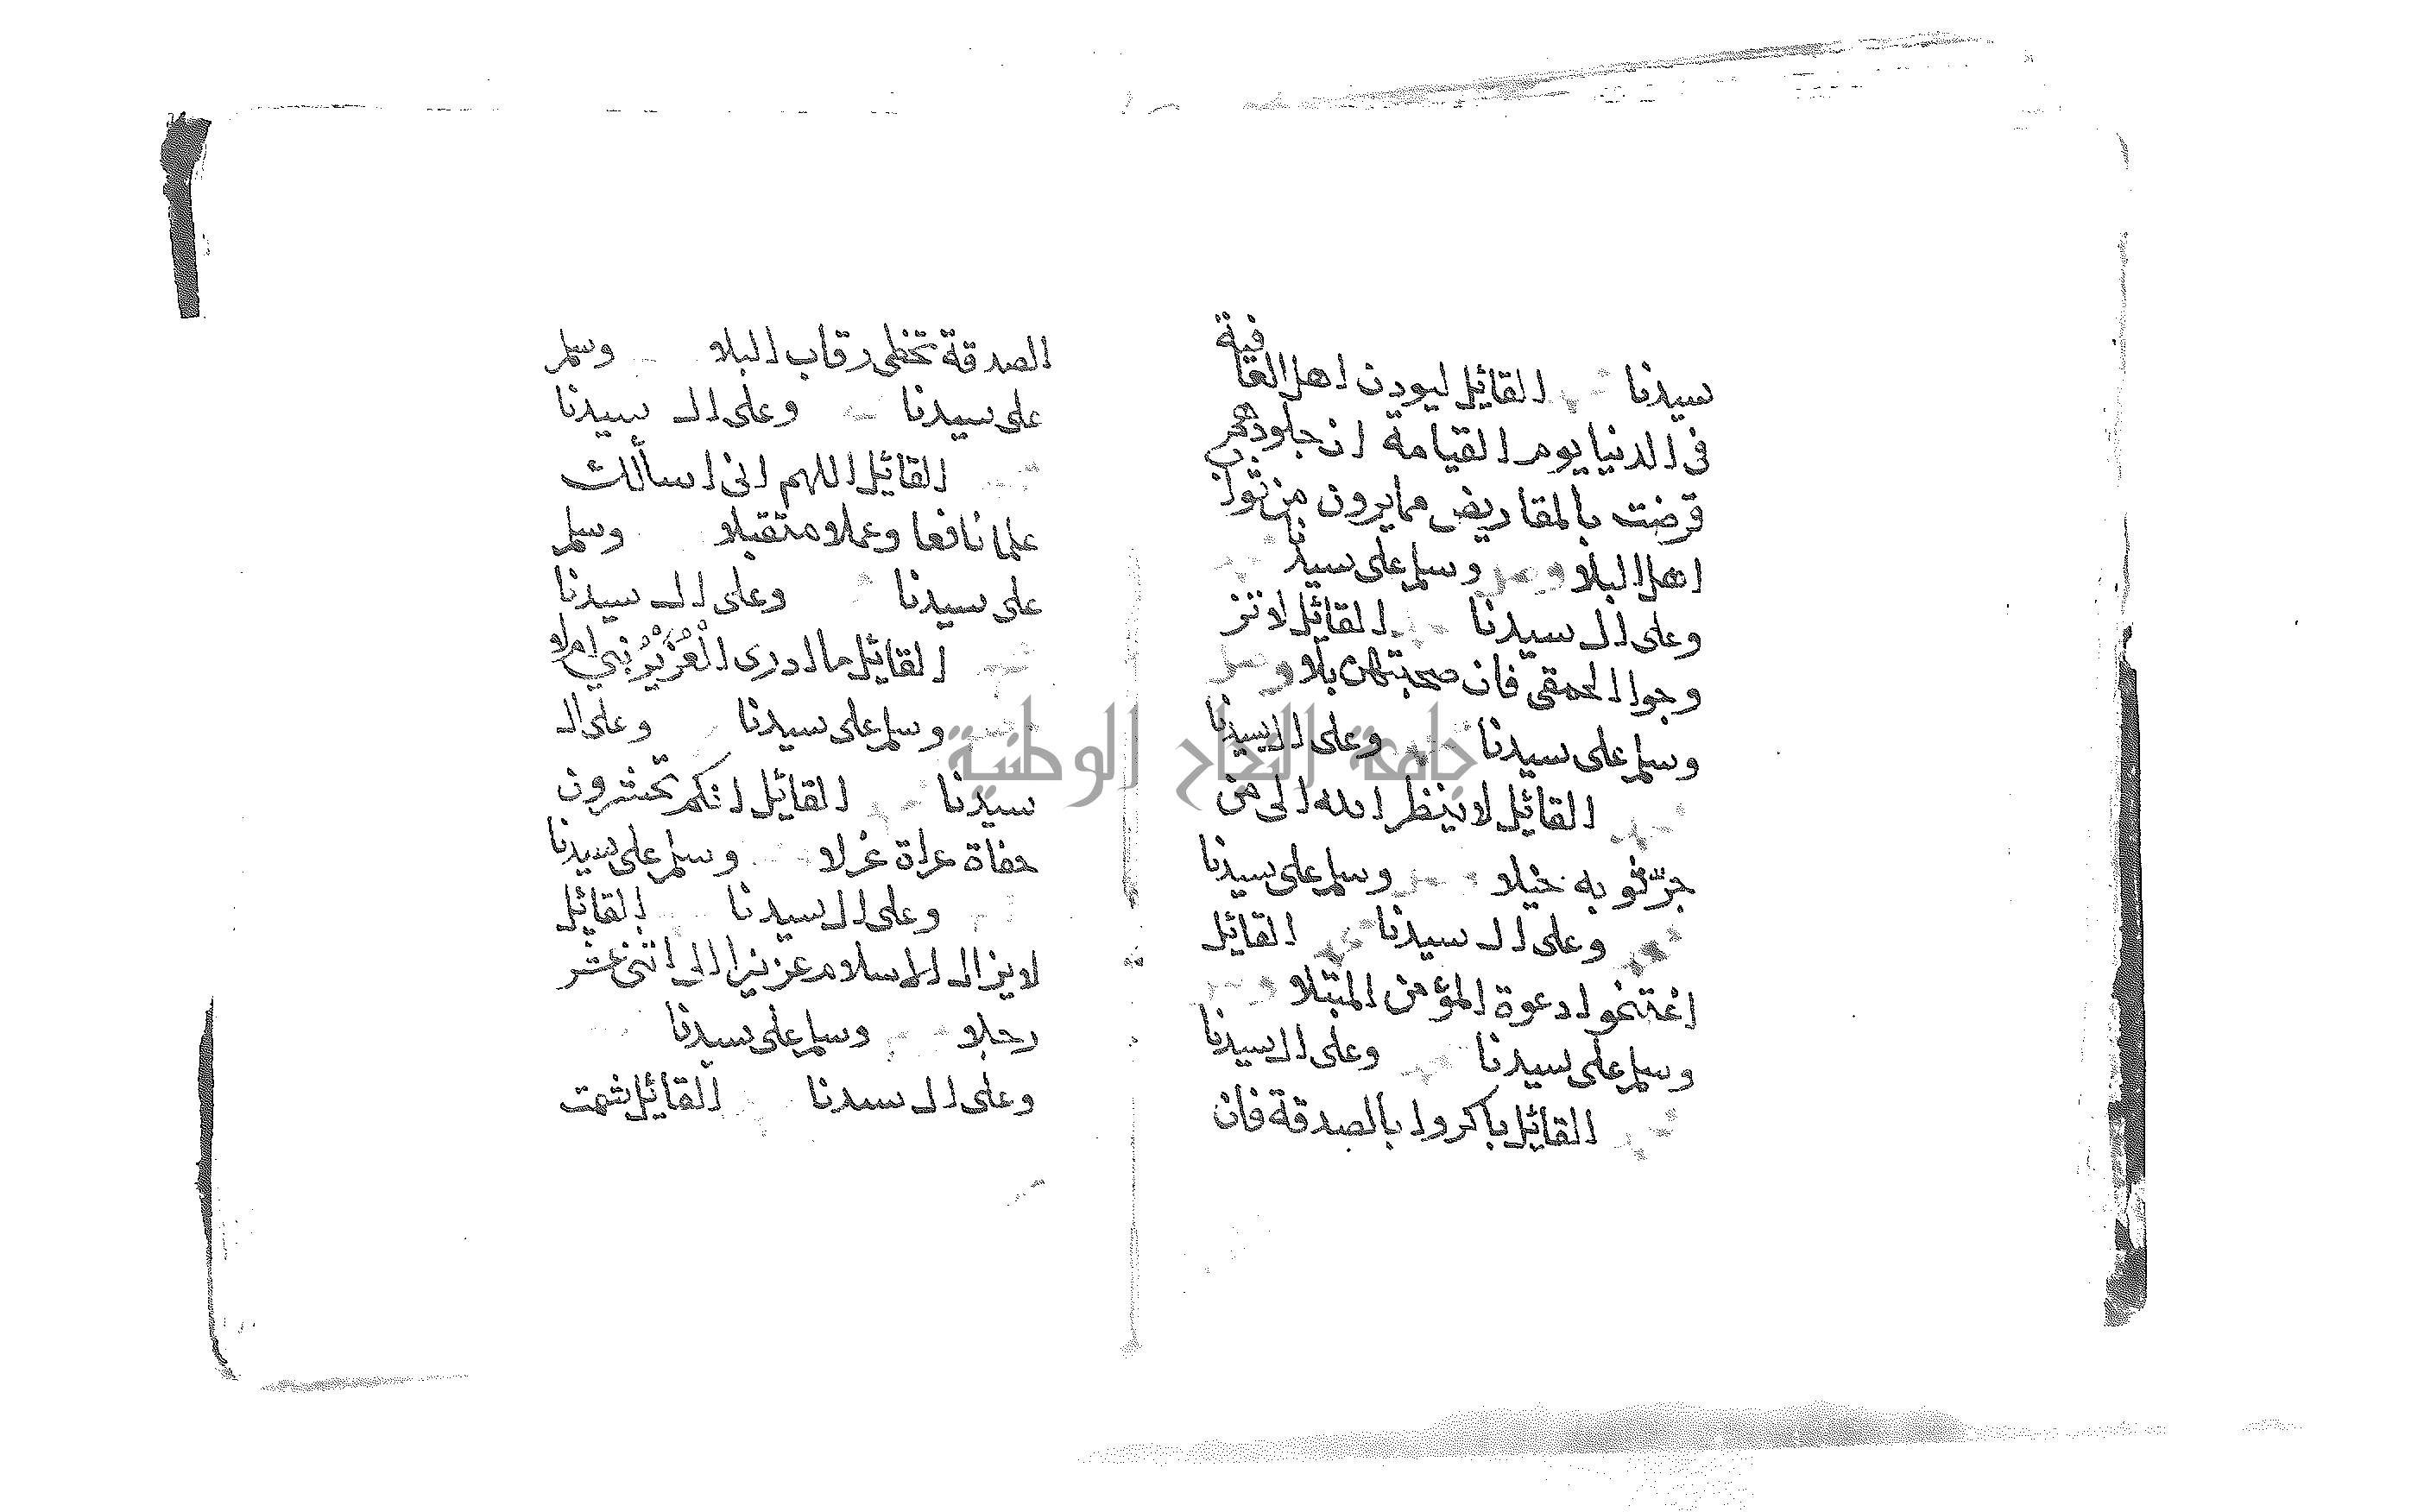 سيدنا القائل ليودن اهل العافية
فى الدنيا يوم القيامة ان جلودهم
قرضت بالمقاريض مما يرون من ثواب
اهل البلا وسلم على سيدنا
وعلى ال سيدنا القائل لا تتز
وجوا الحمقى فان صحبتهن بلا
وسلم على سيدنا وعلى ال سيدنا
القائل لا ينظر الله الى من
جر ثوبه خيلا وسلم على سيدنا
وعلى ال سيدنا القائل
اغتنموا دعوة المؤمن المبتلا
وسلم على سيدنا وعلى ال سيدنا
القائل باكروا بالصدقة فان
الصدقة تخطى رقاب البلا وسلم
على سيدنا وعلى ال سيدنا
القائل اللهم انى اسألك
علما نافعا وعملا متقبلا وسلم
على سيدنا وعلى ال سيدنا
القائل ما ادرى الْعُزَيْرُ نبي ام لا
وسلم على سيدنا وعلى ال
سيدنا القائل انكم تحشرون
حفاة عراة غرلا وسلم على سيدنا
وعلى ال سيدنا القائل
لا يزال الاسلام عزيزا الى اثنى عشر
رجلا وسلم على سيدنا
وعلى ال سيدنا القائل شمت
جامعة النجاح الوطنية